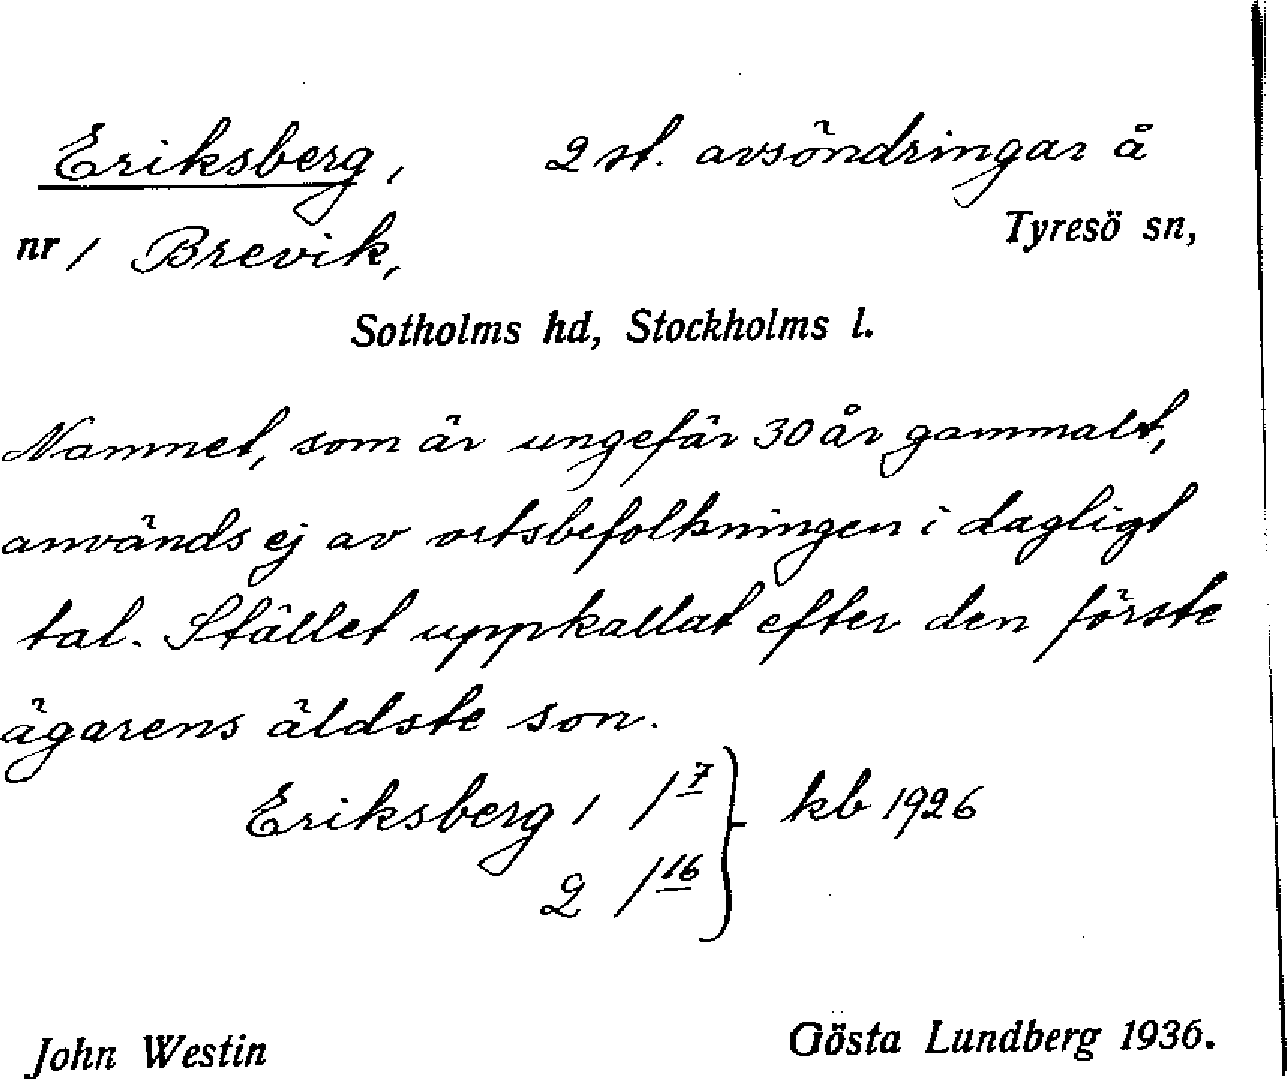 Eriksberg, 2 st. avsöndringar å
Tyresö sn,
nr 1 Brevik,
Sotholms hd, Stockholms l.
Namnet, som är ungefär 30 år gammalt,
används ej av ortsbefolkningen i dagligt
tal. Stället uppkallat efter den förste
ägarens äldste son.
Eriksberg 1 1 7 } kb 1926
2 1 16
John Westin Gösta Lundberg 1936.